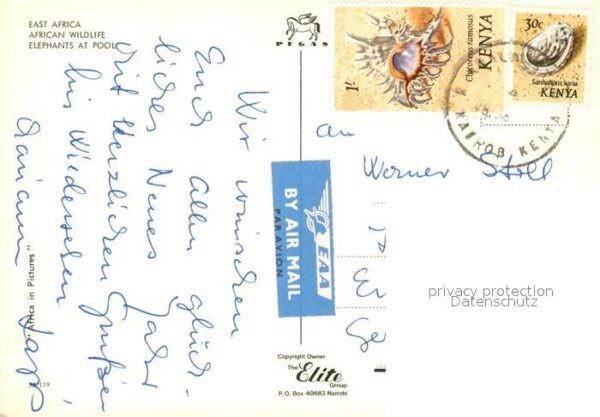 EAST AFRICA
AFRICAN WILDLIFE
ELEPHANTS AT POOL
Wir wünschen
Euch allen glück-
liches Neues Jahr
Mit herzlichen Grüßen
bis Wiedersehen
"Africa in Pictures"
PEGAS
1/-
Chicoreus ramosus
KENYA
30c
KENYA
NAIROBI KENYA
an
Werner Stoll
BY AIR MAIL
PAR AVION
EAA
privacy protection
Datenschutz
Copyright Owner
The Elite
Group
P. O. Box 40683 Nairobi